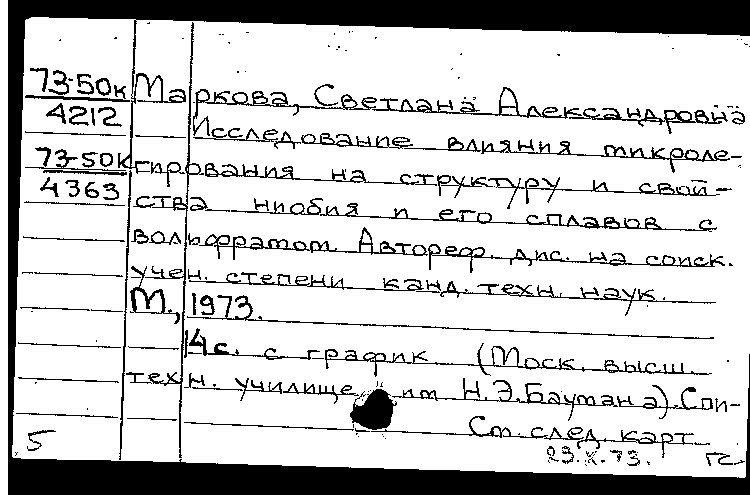 73-50к Маркова, Светлана Александровна
4212 Исследование влияния микроле-
73-50к гирования на структуру и свой-
4363 ства ниобия и его сплавов с
вольфрамом. Автореф. дис. на соиск.
учен. степени канд. техн. наук.
М., 1973.
14 с. с график. (Моск. высш.
техн. училище им. Н.Э.Баумана). Спи-
См. след. карт.
5 23.X.73. гс